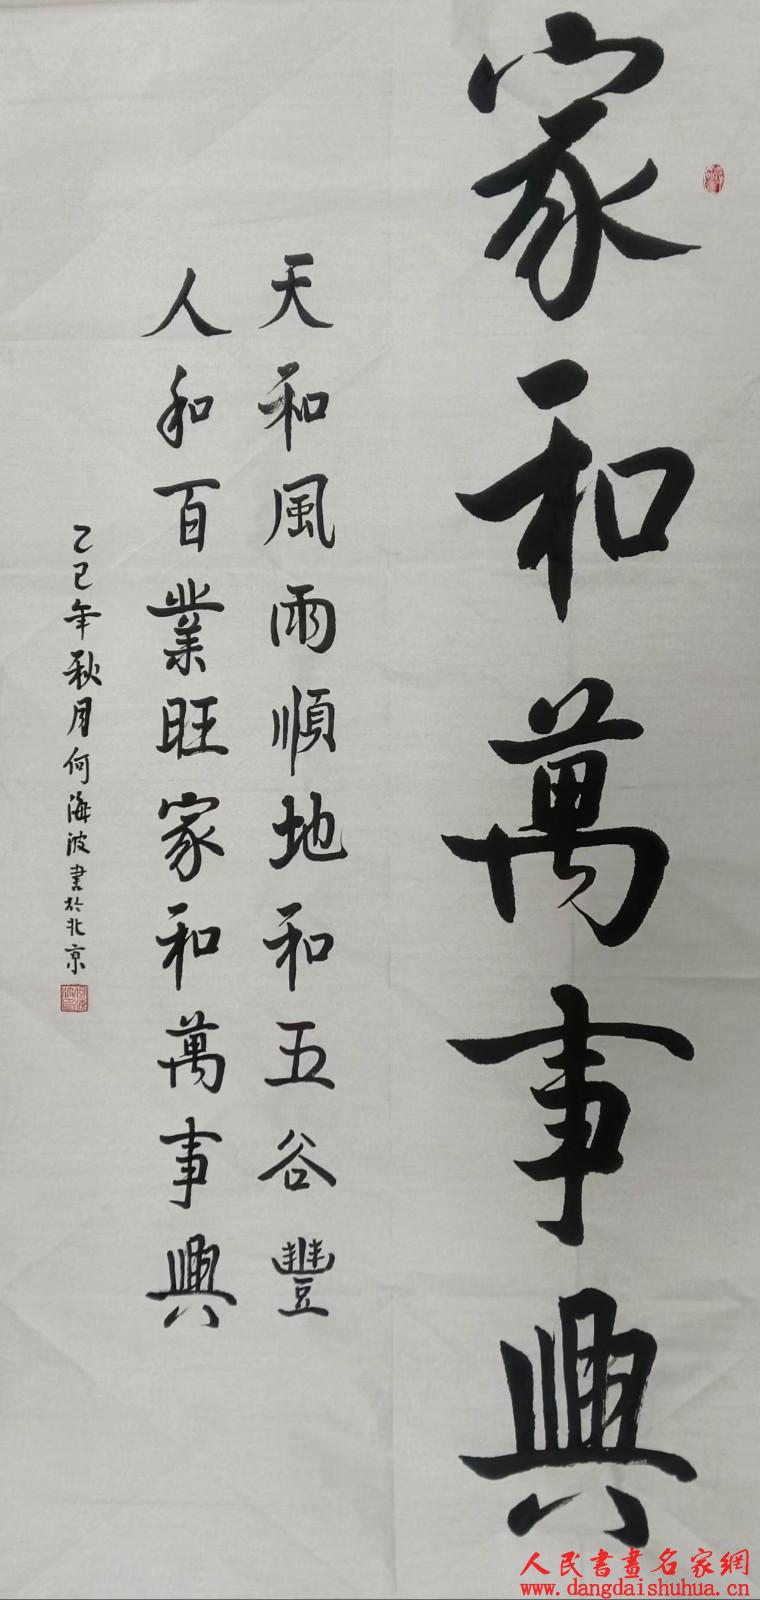 家和萬事興
天和風雨順地和五谷豐
人和百業旺家和萬事興
乙巳年秋月何海波書於北京
人民書畫名家網
www.dangdaishuhua.cn